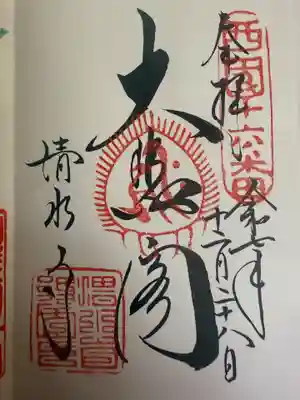 西国十六番
奉拝
令和七年
十二月二十八日
大悲閣
清水寺